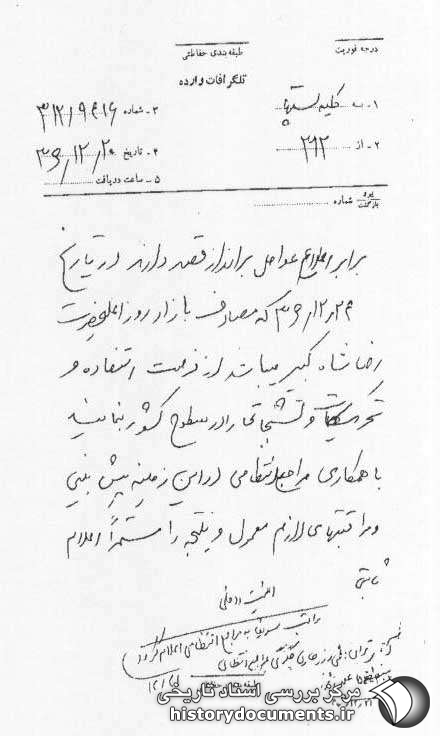 درجه فوریت
طبقه‌بندی حفاظتی
تلگرافات وارده
۱ـ به کلیه استها
۳ـ شماره ۳۱۲/۹۶۱۶
۲ـ از ۳۱۲
۴ـ تاریخ ۳۶/۱۲/۲۰
۵ـ ساعت دریافت
پیرو
بازگشت شماره
برابر اعلام عوامل برانداز قصد دارند در تاریخ
۳۶/۱۲/۲۴ که مصادف با زاد روز اعلیحضرت
رضا شاه کبیر میباشد از فرصت استفاده و
تحریکات و تشنجاتی را در سطوح کشور بنمایند
با همکاری مراجع انتظامی در این زمینه پیش بینی
و مراقبتهای لازم معمول و نتیجه را مستمراً اعلام
ثابتی
امنیت داخلی
مراتب به مراجع انتظامی اعلام گردد
مرکز بررسی اسناد تاریخی
historydocuments.ir